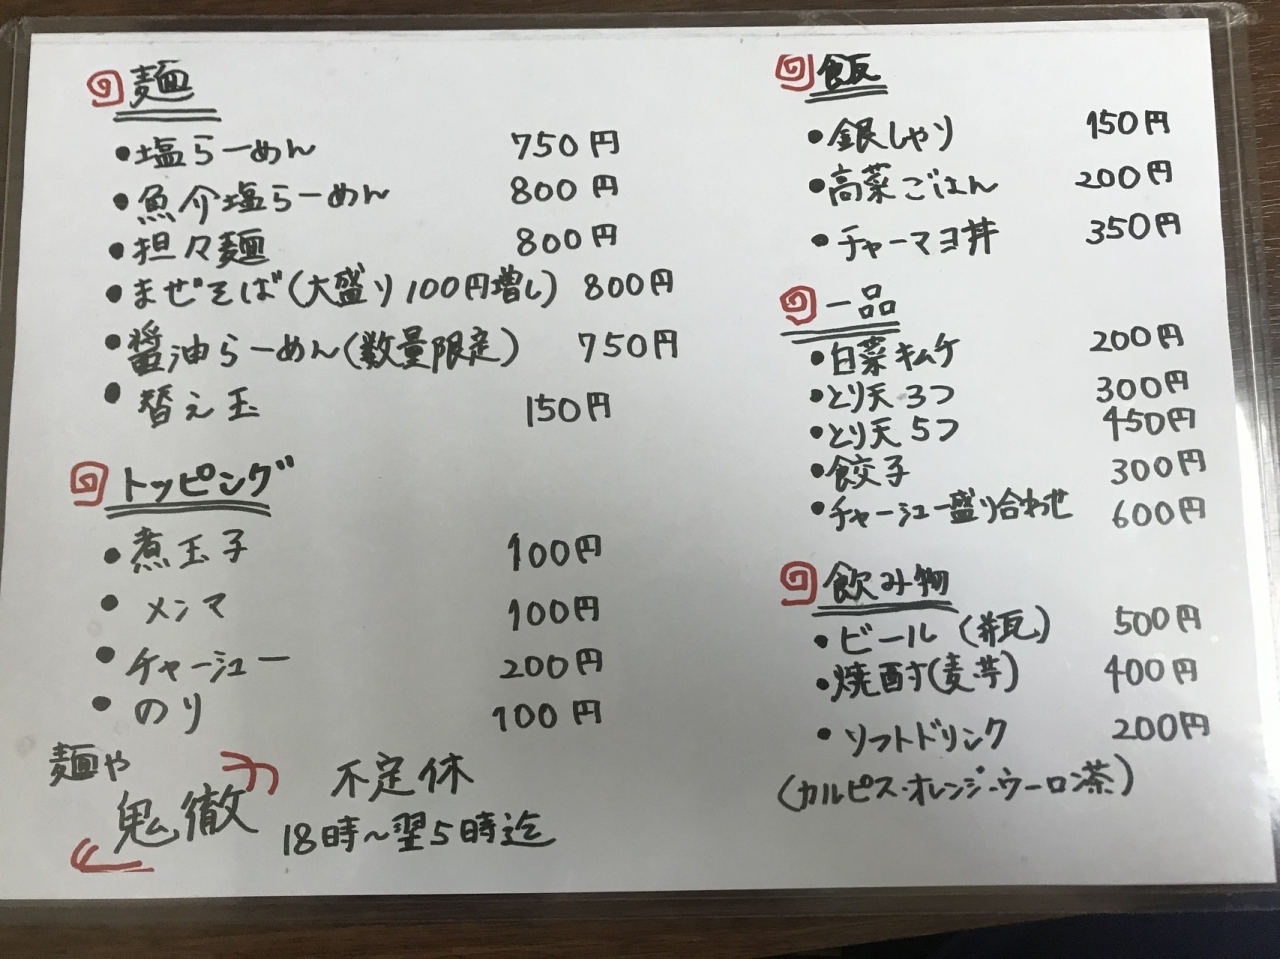 麺
・塩らーめん 750円
・魚介塩らーめん 800円
・担々麺 800円
・まぜそば(大盛り100円増し) 800円
・醤油らーめん(数量限定) 750円
・替え玉 150円
トッピング
・煮玉子 100円
・メンマ 100円
・チャーシュー 200円
・のり 100円
麺や
鬼徹
不定休
18時〜翌5時迄
飯
・銀しゃり 150円
・高菜ごはん 200円
・チャーマヨ丼 350円
一品
・白菜キムチ 200円
・とり天3つ 300円
・とり天5つ 450円
・餃子 300円
・チャーシュー盛り合わせ 600円
飲み物
・ビール(瓶) 500円
・焼酎(麦・芋) 400円
・ソフトドリンク 200円
(カルピス・オレンジ・ウーロン茶)